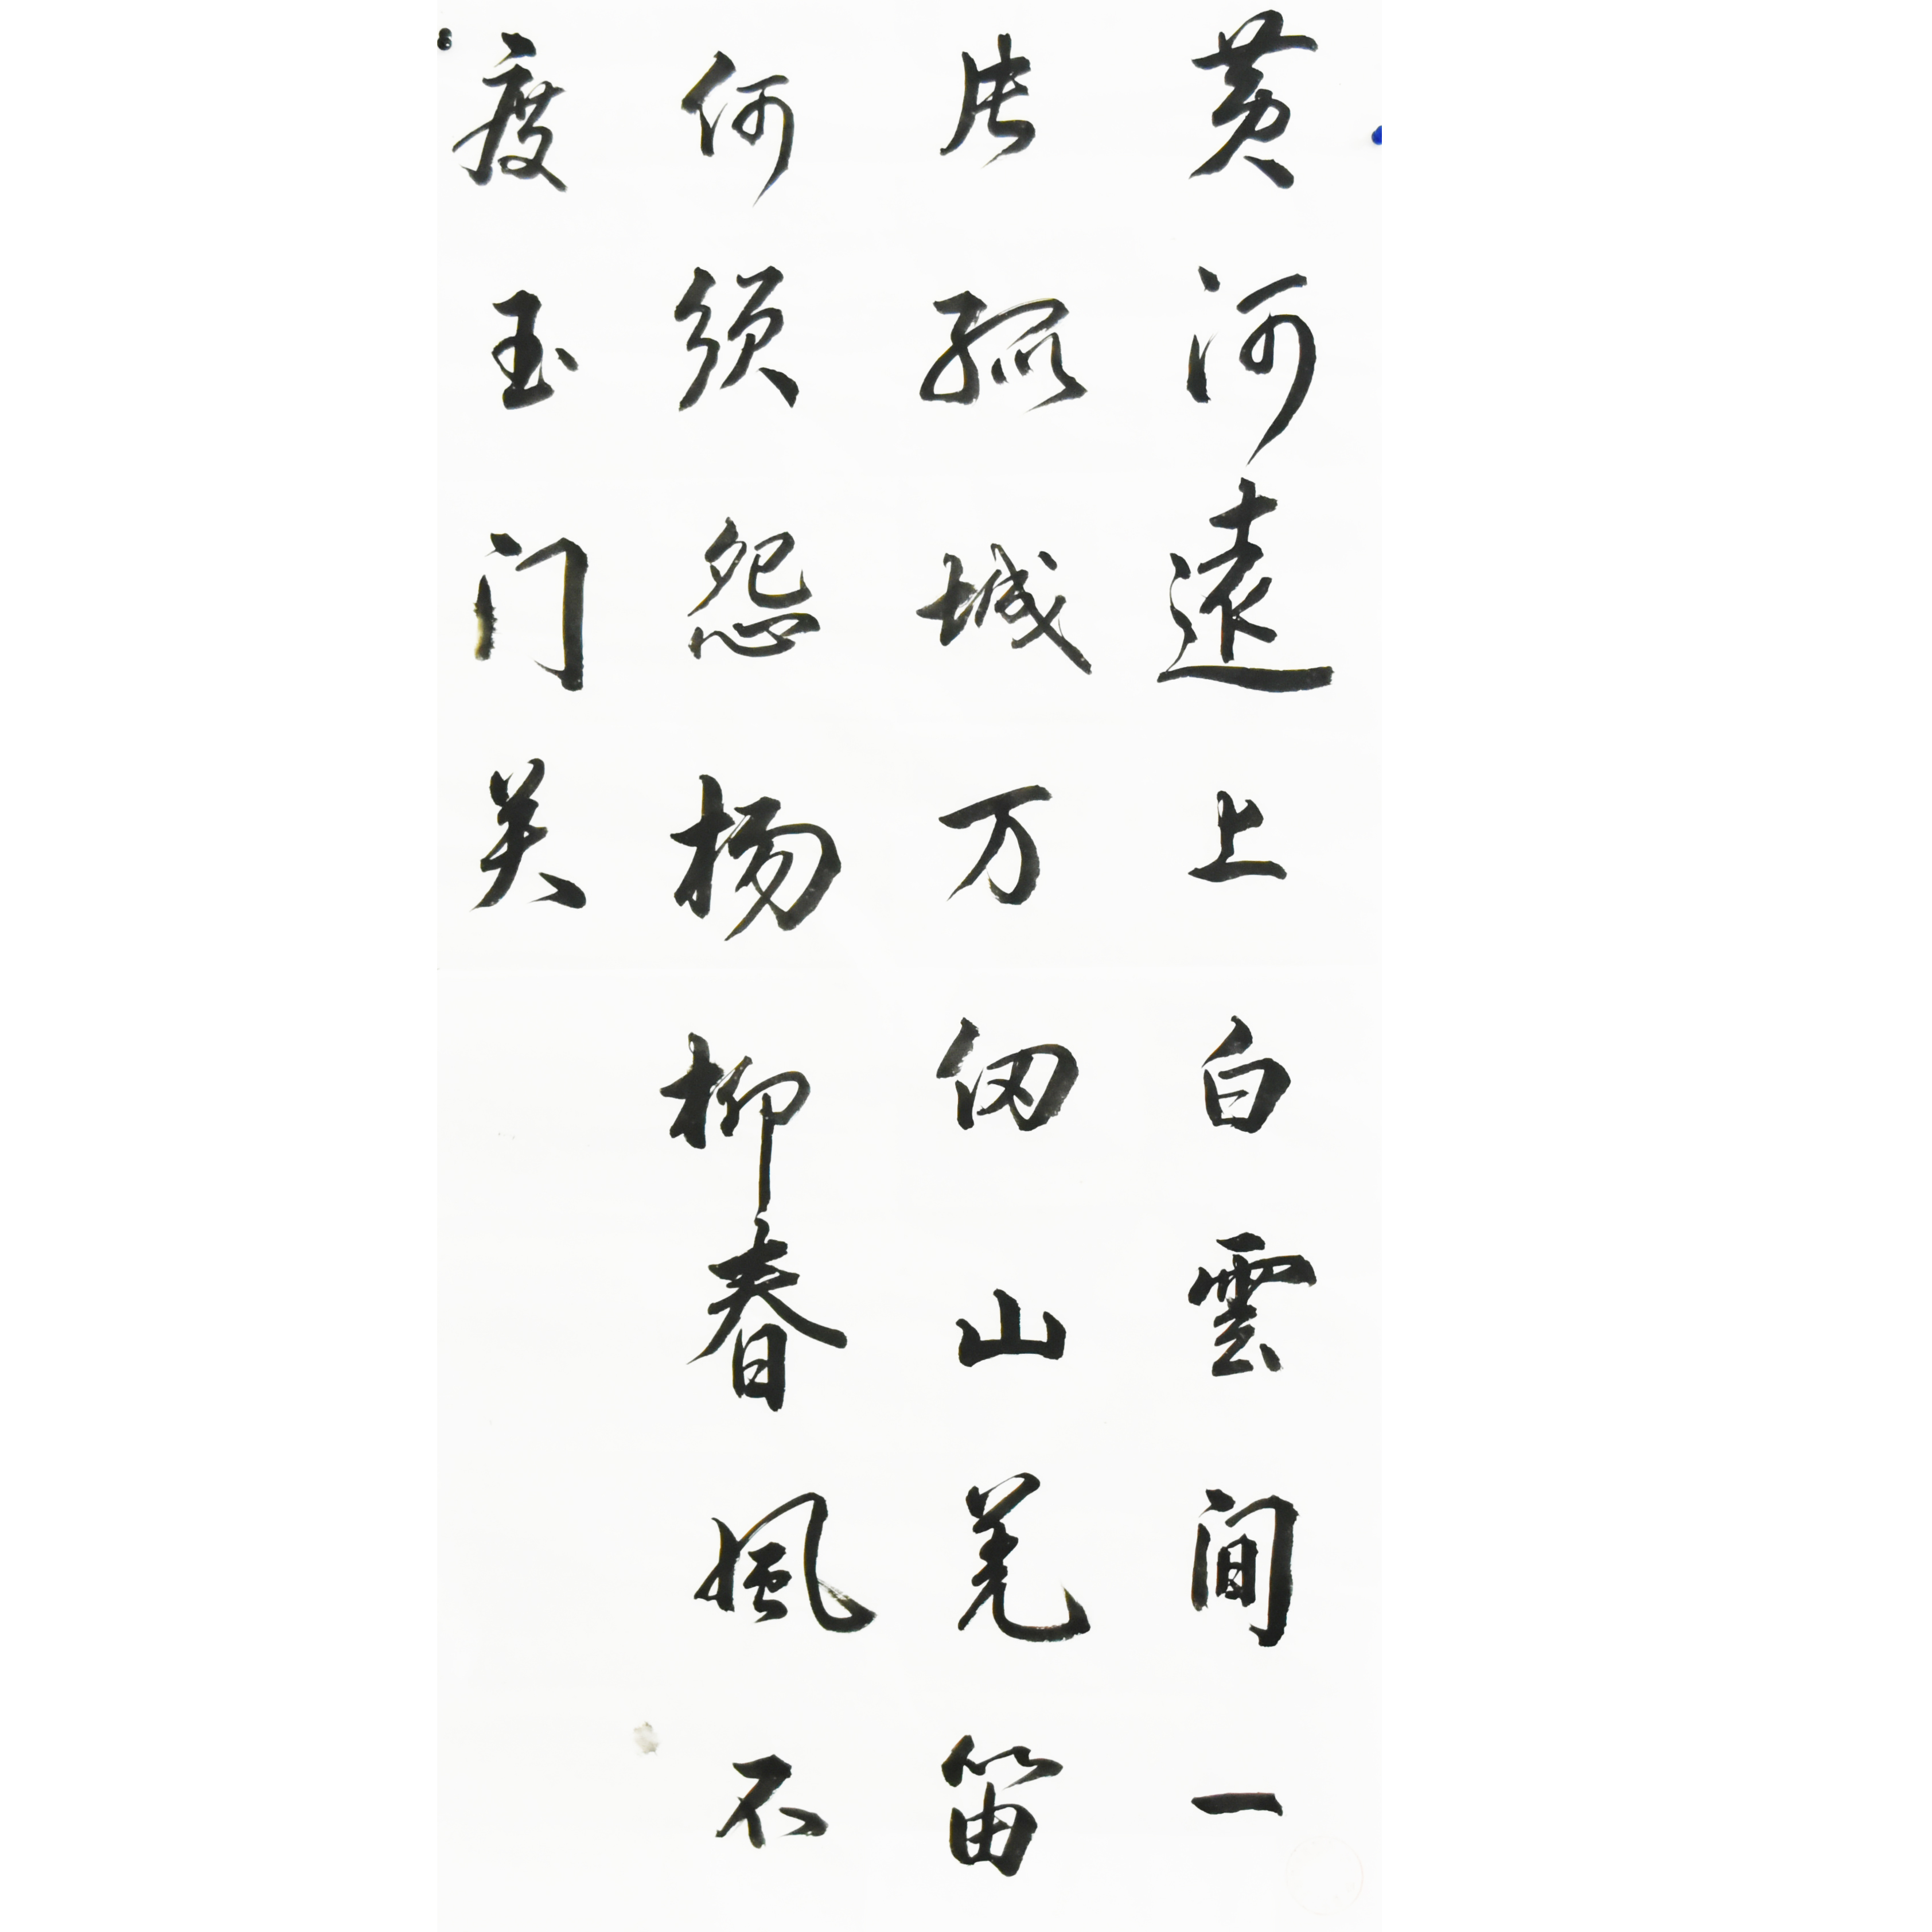 黄河遠上白雲间一
片孤城万仞山羌笛
何须怨杨柳春風不
度玉门关